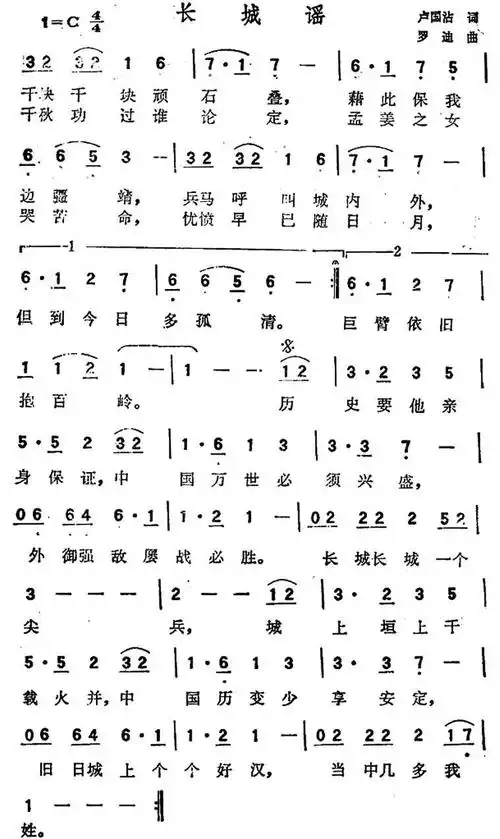 长 城 谣
1=C 4/4
卢国沾 词
罗 迪 曲
32 32 1 6 | 7·1 7 — | 6·1 7 5 |
千块千 块顽 石 叠， 藉此保我
千秋功 过谁 论 定， 孟姜之女
6 6 5 3 — | 32 32 1 6 | 7·1 7 — |
边 疆 靖， 兵马呼 叫城 内 外，
哭 苦 命， 忧愤早 已随 日 月，
1 2
6·1 2 7 | 6 6 5 6 — :‖ 6·1 2 7 |
但到今日 多孤 清。 巨臂依旧
1 1 2 1 — | 1 — — 12 | 3·2 3 5 |
抱百 岭。 历 史要他亲
5·5 2 32 | 1·6 1 3 | 3·3 7 — |
身保证，中 国万世必 须兴盛，
06 64 6·1 | 1·2 1 — | 02 22 2 52 |
外 御强 敌屡 战必胜。 长 城长 城 一个
3 — — — | 2 — — 12 | 3·2 3 5 |
尖 兵， 城 上垣上千
5·5 2 32 | 1·6 1 3 | 3·3 7 — |
载火并，中 国历变少 享安定，
06 64 6·1 | 1·2 1 — | 02 22 2 17 |
旧 日城 上个 个好汉， 当 中几 多 我
1 — — — :‖
姓。